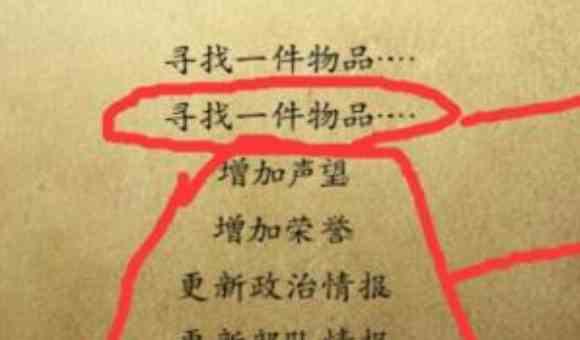 寻找一件物品····
寻找一件物品····
增加声望
增加荣誉
更新政治情报
更新部队情报